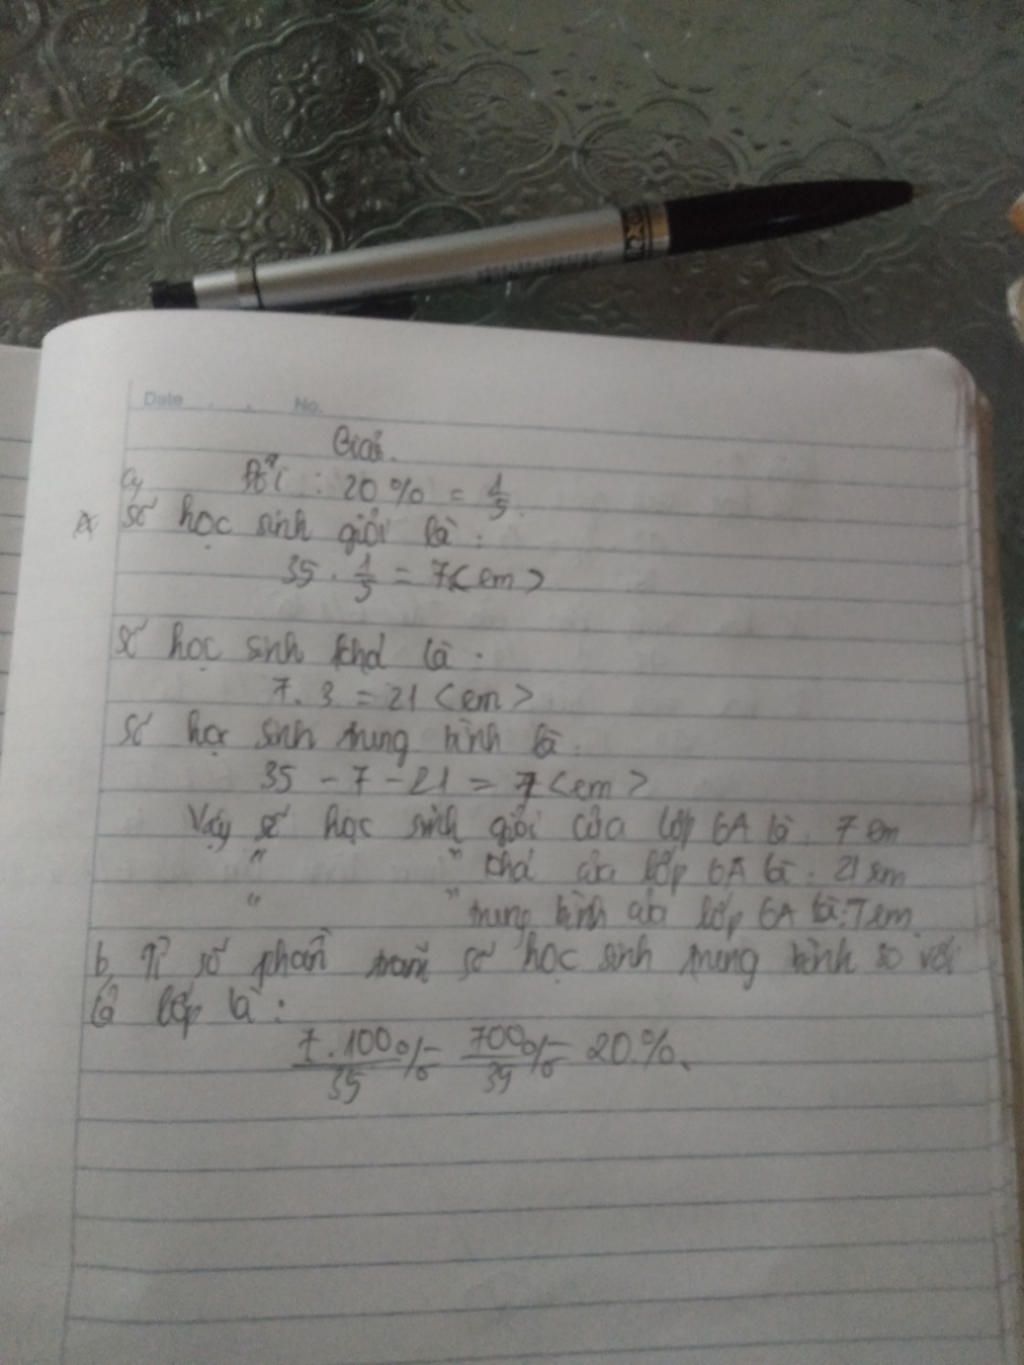 Date . . No.
Giải.
a, Đổi : 20% = 1/5.
số học sinh giỏi là :
35 . 1/5 = 7 <em>
số học sinh khá là :
7 . 3 = 21 <em>
số học sinh trung bình là :
35 - 7 - 21 = 7 <em>
Vậy số học sinh giỏi của lớp 6A là : 7 em
" " khá của lớp 6A là : 21 em
" " trung bình của lớp 6A là : 7 em.
b, Tỉ số phần trăm số học sinh trung bình so với
cả lớp là :
7 . 100/35 % = 700/35 % = 20 %.